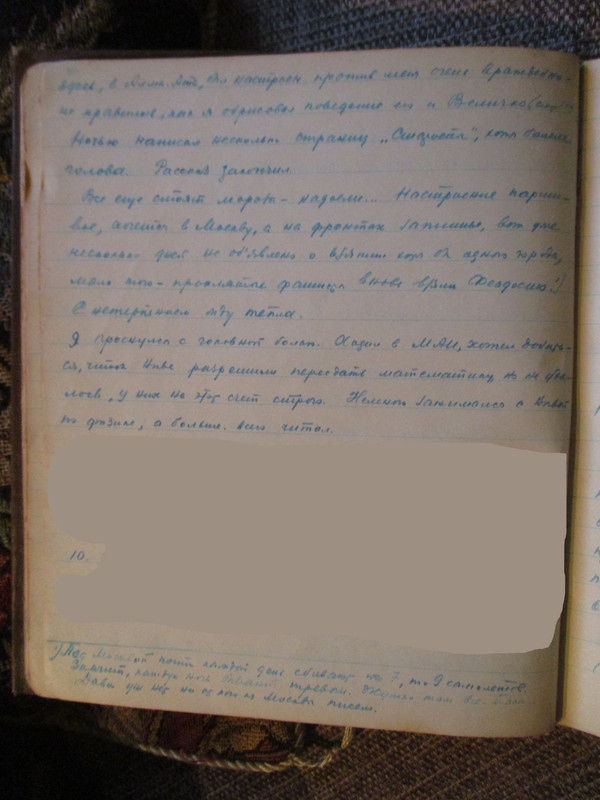 здесь, в Алма-Ата, был настроен против меня очень враждебно-
их правилов, как я обрисовал поведение его и Величко
Ночью написал несколько страниц „ ", хоть болела
голова. Рассказ закончил.
Все еще стоят морозы - надоели... Настроение парши-
вое, хочется в Москву, а на фронтах затишье, вот уже
несколько дней не объявлено о взятии хотя бы одного города,
мало того - проклятые фашисты вновь взяли Феодосию.¹)
С нетерпением жду тепла.
Я проснулся с головной болью. Ходил в МАИ, хотел добить-
ся, чтобы мне разрешили пересдать математику, но не уда-
лось, у них на этот счет строго. Немного занимался с Давой
по физике, а больше всего читал.
10.
¹) Над Москвой почти каждый день сбивают по 7, то 9 самолетов.
Значит, каждую ночь бывают тревоги. там все-таки
Давно уж нет ни одного из Москвы писем.